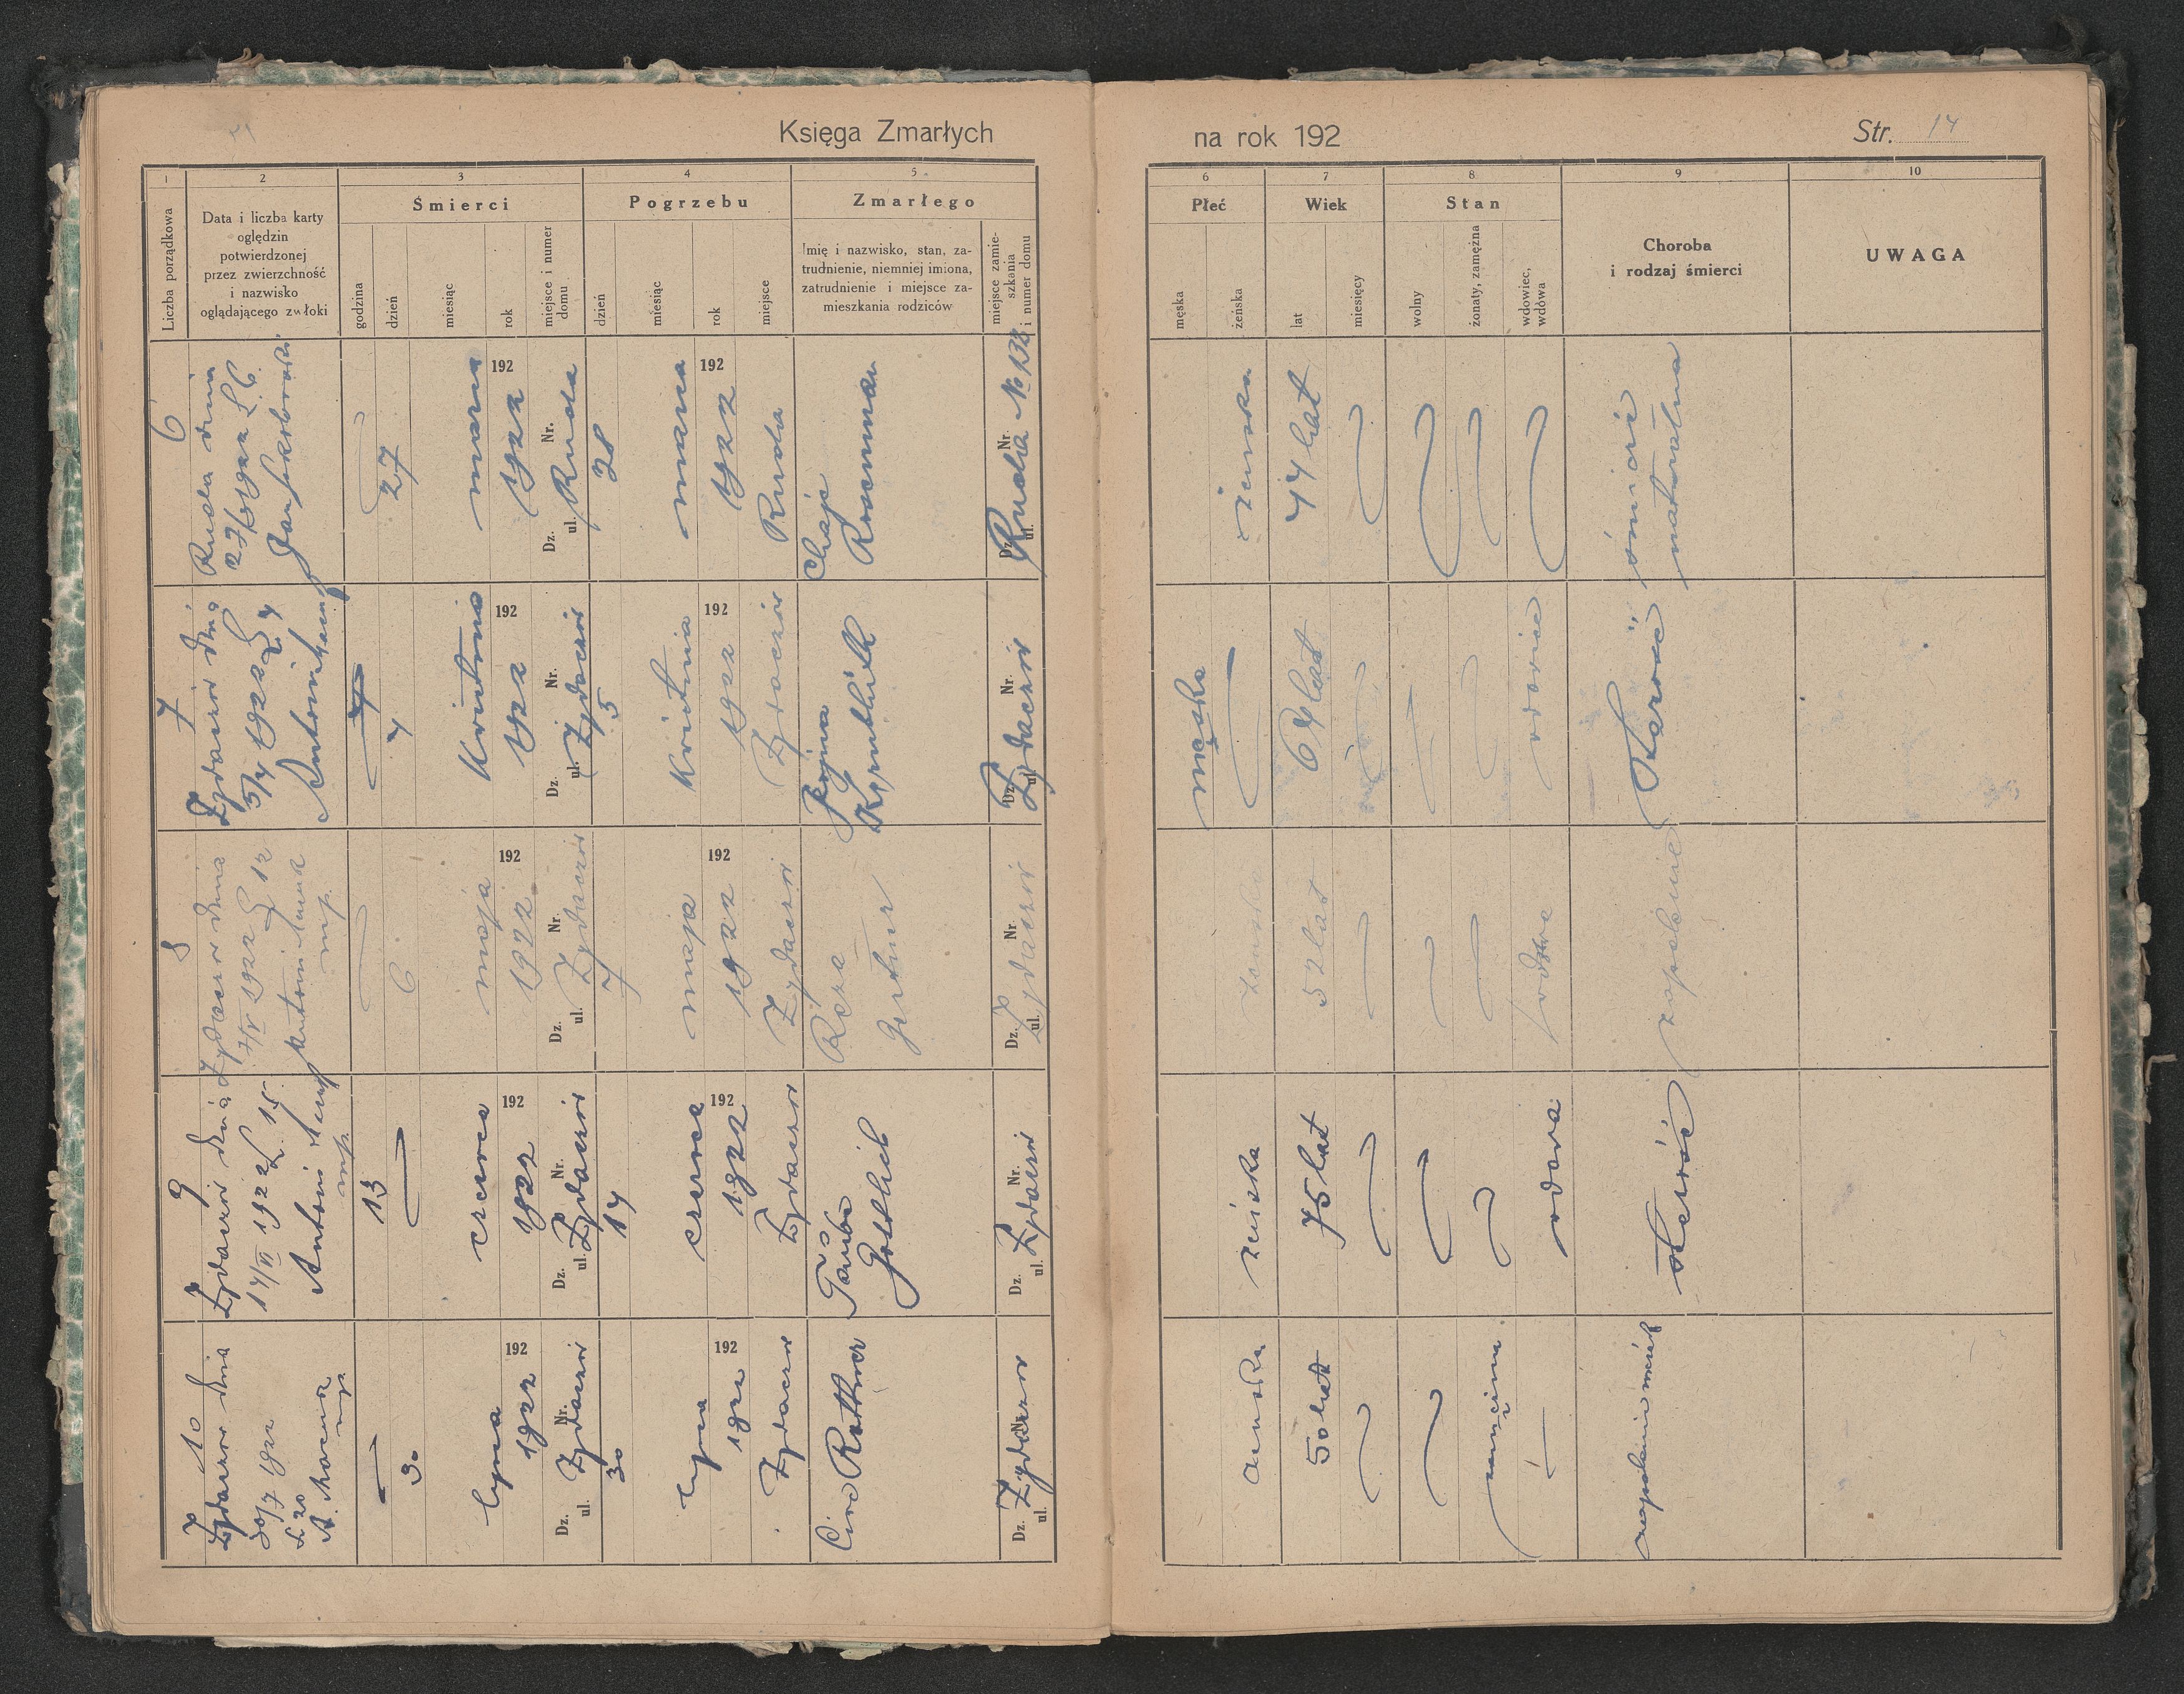 Księga Zmarłych
na rok 192
Str. 14
1
2
3
4
5
6
7
8
9
10
Liczba porządkowa
Data i liczba karty
oględzin
potwierdzonej
przez zwierzchność
i nazwisko
oglądającego zwłoki
Śmierci
godzina
dzień
miesiąc
rok
miejsce i numer
domu
Pogrzebu
dzień
miesiąc
rok
miejsce
Zmarłego
Imię i nazwisko, stan, za-
trudnienie, niemniej imiona,
zatrudnienie i miejsce za-
mieszkania rodziców
miejsce zamie-
szkania
i numer domu
Płeć
męska
żeńska
Wiek
lat
miesięcy
Stan
wolny
żonaty, zamężna
wdowiec,
wdowa
Choroba
i rodzaj śmierci
UWAGA
6
Ruda dnia
27/3 1922 L 6.
27
marca
192
1922
Dz. Nr.
ul. Ruda
28
marca
192
1922
Ruda
Chaje
Rosenman
Dz. Nr
ul. Ruda No 138
żenska
44 lat
śmierć
naturalna
7
Żydaczów dnia
5/4 1922 L 4
Antoni
4
kwietnia
192
1922
Dz. Nr.
ul. Żydaczów
5
kwietnia
192
1922
Żydaczów
Dz. Nr.
ul. Żydaczów
męska
64 lat
wdowiec
Starość
8
Żydaczów dnia
7/V 1922 L 12
Antoni
mp.
6
maja
192
1922
Dz. Nr
ul. Żydaczów
7
maja
192
1922
Żydaczów
Róza
Gertner
Dz. Nr
ul. Żydaczów
żenska
52 lat
wdowa
zapalenie
9
Żydaczów dnia
14/VI 1922 L. 15
Antoni
mp.
13
czerwca
192
1922
Dz. Nr.
ul. Żydaczów
14
czerwca
192
1922
Żydaczów
Tauba
Gottlieb
Dz. Nr.
ul. Żydaczów
żeńska
75 lat
wdowa
starość
10
Żydaczów dnia
30/7 1922
L 20
A.
mp
30
lipca
192
1922
Dz. Nr.
ul. Żydaczów
30
lipca
192
1922
Żydaczów
Rothner
Dz. Nr.
ul. Żydaczów
żenska
50 lat
zamężna
zapalenie